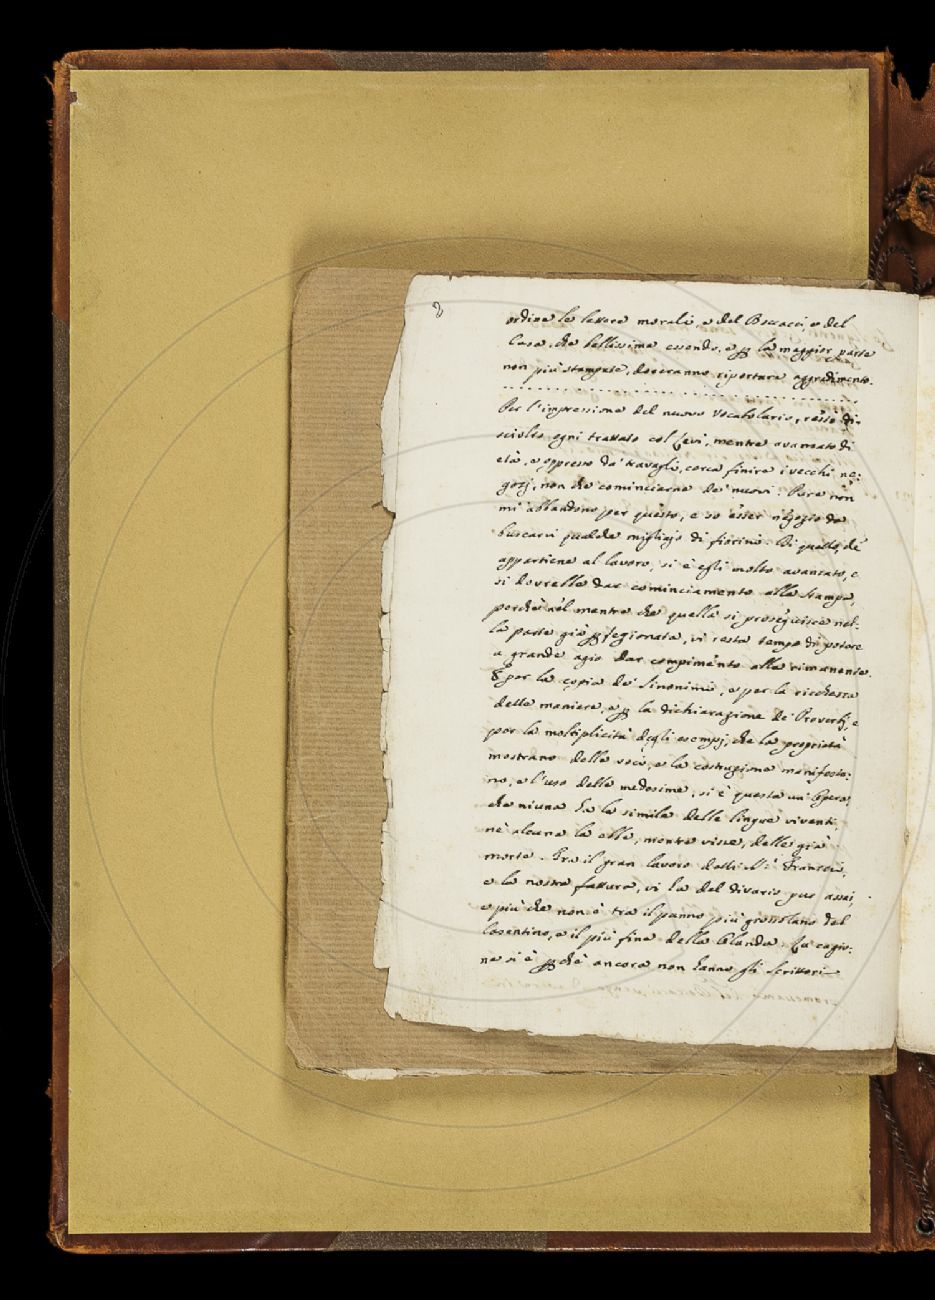 2
ordine le lettere morali, e del Boccacci, e del
Casa, che bellissime essendo, e p la maggior parte
non più stampate, doveranno riportare aggradimento.
Per l'impressione del nuovo Vocabolario, resto di-
sciolto ogni trattato col Levi, mentre avanzato di
età, e oppresso da' travagli, cerca finire i vecchi ne:
gozj, non che cominciarne de' nuovi. Pure non
mi abbandono per questo, e so esser negozio da
buscarvi qualche migliajo di fiorini. Di quello, che
appartiene al lavoro, si è egli molto avanzato, e
si dovrebbe dar cominciamento alla stampa,
perchè nel mentre che quella si proseguisce nel:
la parte già pfezionata, vi resta tempo di potere
a grande agio dar compimento alla rimanente.
E per la copia de' Sinonimi, e per la ricchezza
delle maniere, e p la dichiarazione de' Proverbj, e
per la moltiplicità degli esempj, che la proprietà
mostrano delle voci, e la costruzione manifesta:
no, e l'uso delle medesime, si è questa un'Opera,
che niuna ha la simile delle lingue viventi,
nè alcuna la ebbe, mentre visse, delle già
morte. Tra il gran lavoro delli SS.i Franzesi,
e la nostra fattura, vi ha del divario pur assai,
e più che non è tra il panno più grossolano del
Casentino, e il più fine della Olanda. La cagio:
ne si è pchè ancora non hanno gli Scrittori